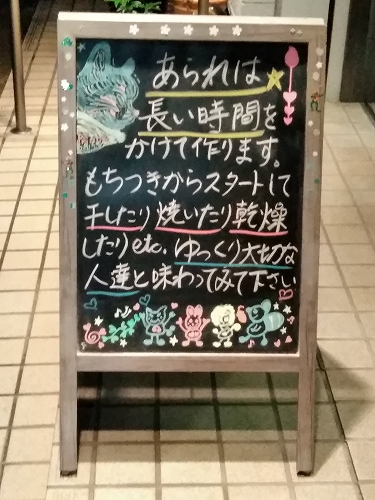 あられは
長い時間を
かけて作ります。
もちつきからスタートして
干したり焼いたり乾燥
したりetc. ゆっくり大切な
人達と味わってみて下さい